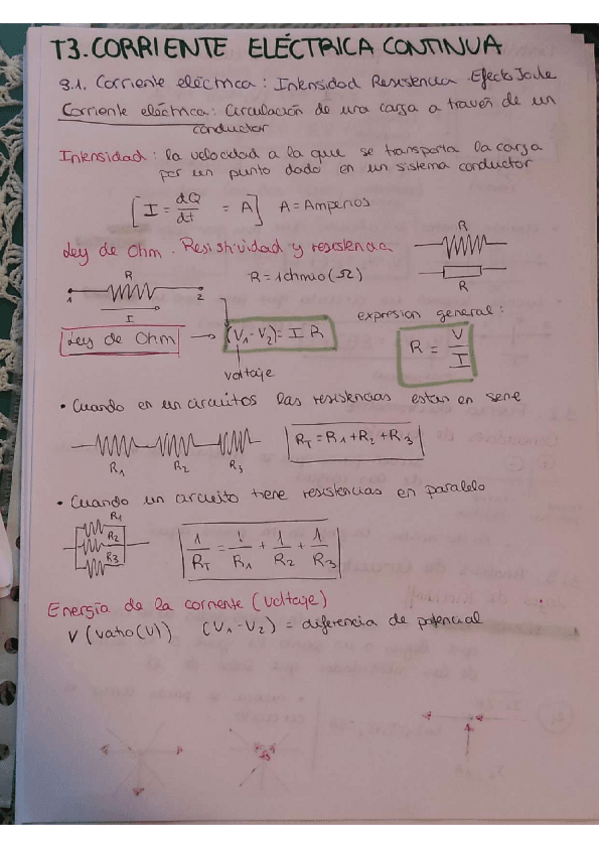 T3. CORRIENTE ELÉCTRICA CONTINUA
3.1. Corriente eléctrica: Intensidad Resistencia. Efecto Joule
Corriente eléctrica: Circulación de una carga a través de un
conductor
Intensidad: la velocidad a la que se transporta la carga
por un punto dado en un sistema conductor
[I = dQ/dt = A] A = Amperios
Ley de Ohm. Resistividad y resistencia
R
R
R = 1 ohmio (Ω)
R
1 2
I
expresion general:
Ley de Ohm → (V1 - V2) = I R
R = V/I
voltaje
• Cuando en un circuitos las resistencias estan en serie
R1 R2 R3
RT = R1 + R2 + R3
• Cuando un circuito tiene resistencias en paralelo
R1
R2
R3
1/RT = 1/R1 + 1/R2 + 1/R3
Energía de la corriente (voltaje)
V (vatio (V)) (V1 - V2) = diferencia de potencial